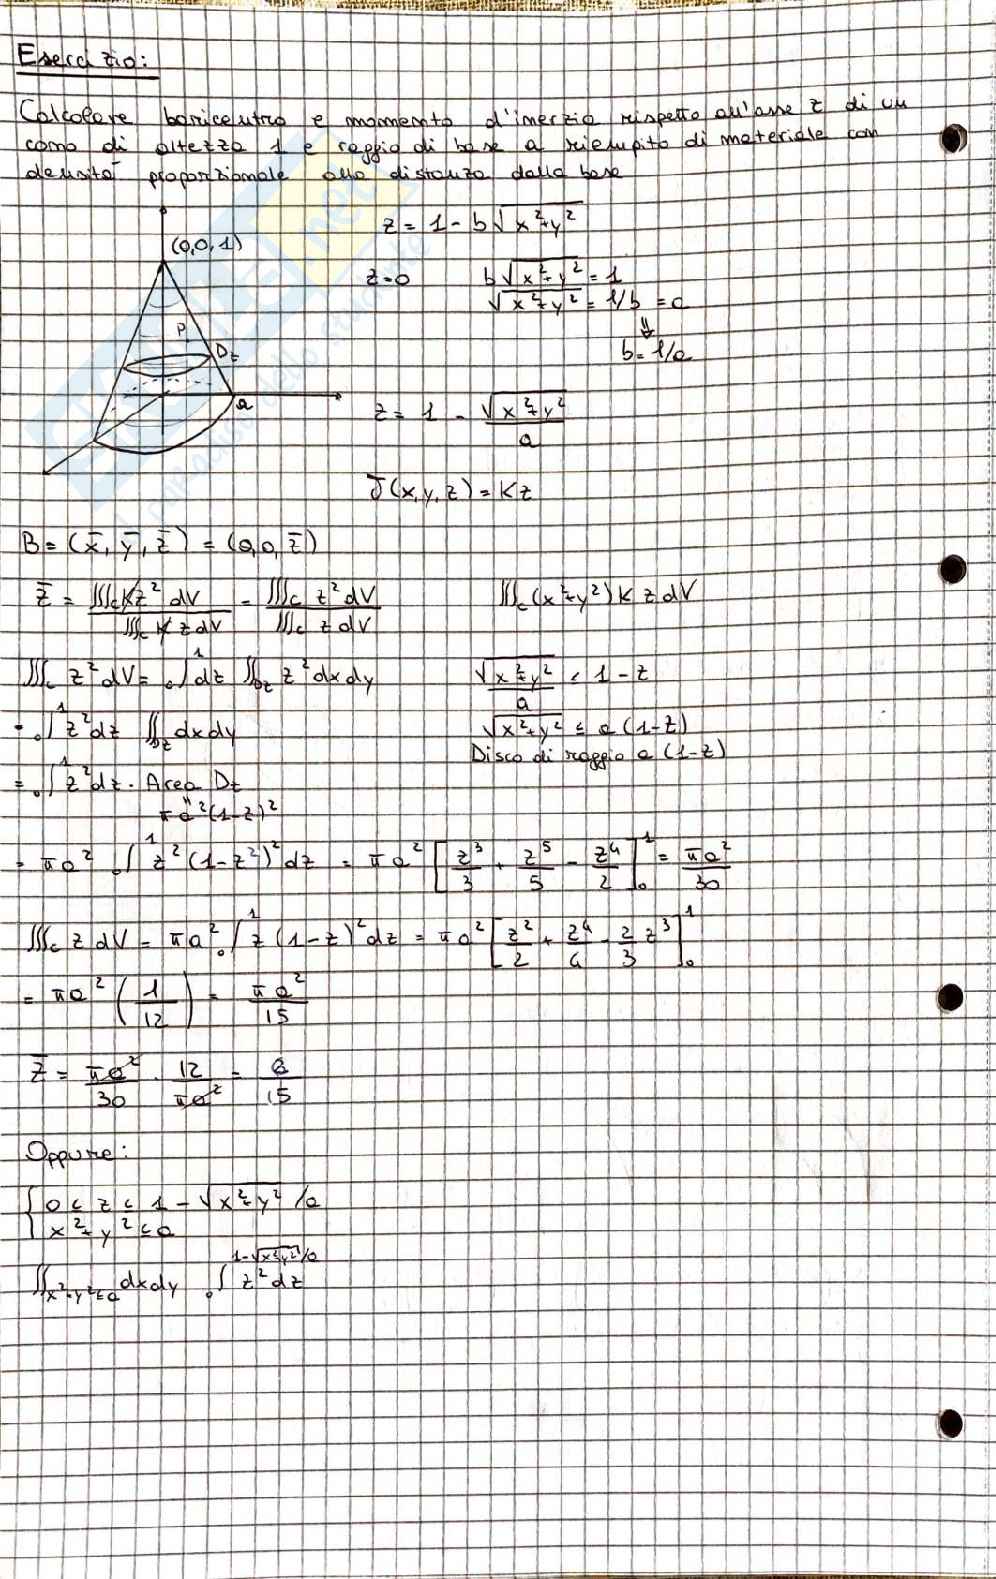 Esercizio:
Calcolare baricentro e momento d'inerzia rispetto all'asse z di un
cono di altezza 1 e raggio di base a riempito di materiale con
densità proporzionale alla distanza dalla base
(0,0,1)
P
Dz
a
z = 1 - b√(x²+y²)
z=0 b√(x²+y²) = 1
√(x²+y²) = 1/b = a
⇓
b = 1/a
z = 1 - √(x²+y²)/a
δ(x,y,z) = Kz
B = (x̄, ȳ, z̄) = (0,0,z̄)
z̄ = ∭c Kz² dV / ∭c K z dV = ∭c z² dV / ∭c z dV ∭c (x²+y²) K z dV
∭c z² dV = ₀∫¹ dz ∬Dz z² dxdy √(x²+y²)/a ≤ 1 - z
= ₀∫¹ z² dz ∬Dz dxdy √(x²+y²) ≤ a(1-z)
Disco di raggio a(1-z)
= ₀∫¹ z² dz · Area Dz
"
πa²(1-z)²
= πa² ₀∫¹ z²(1-z²)² dz = πa² [z³/3 + z⁵/5 - z⁴/2]₀¹ = πa²/30
∭c z dV = πa² ₀∫¹ z(1-z)² dz = πa² [z²/2 + z⁴/4 - 2/3 z³]₀¹
= πa² (1/12) = πa²/15
z̄ = πa²/30 · 12/πa² = 6/15
Oppure:
{ 0 ≤ z ≤ 1 - √(x²+y²)/a
x²+y² ≤ a
∬x²+y²≤a dxdy ₀∫^(1-√(x²+y²)/a) z² dz